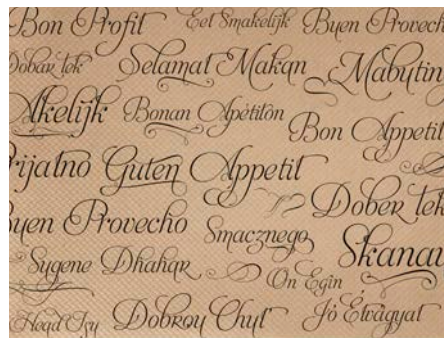 Bon Profit Eet Smakelijk Buen Provech
Dobar tek Selamat Makan Mabutin
akelijk Bonan Apétitôn Bon Appetit
rijatno Guten Appetit
Dober tek
Buen Provecho Smacznego Skanau
Sygene Dhahar On Egin
Dobrou Chut Jó Étvágyat